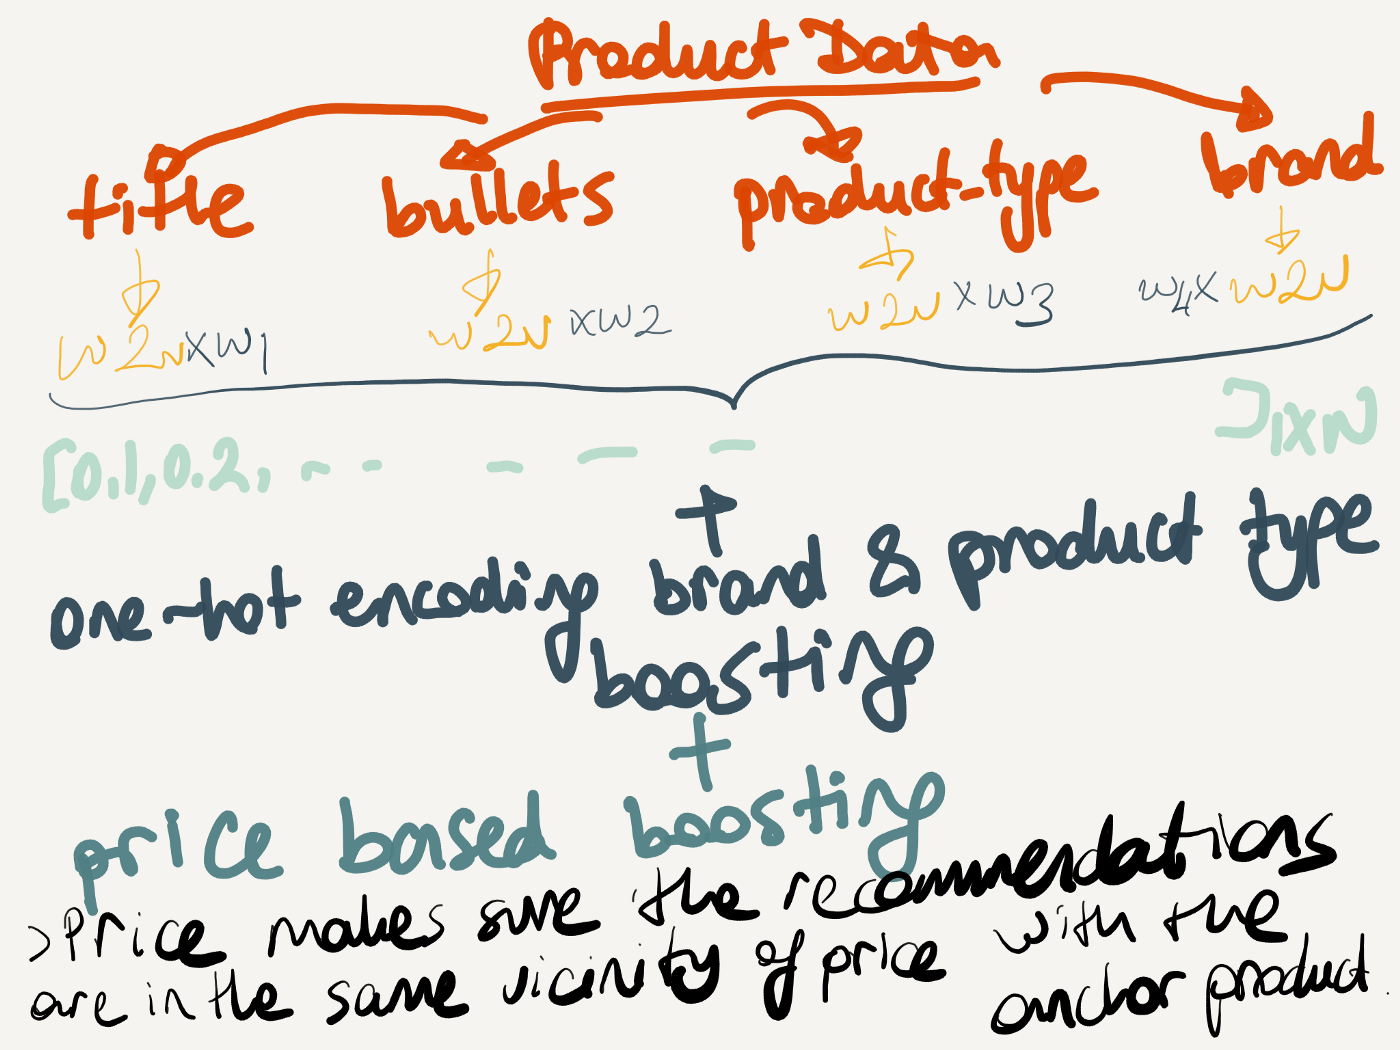 Product Data
title bullets product_type brand
w2v xw1 w2v xw2 w2v xw3 w4x w2v
[0.1, 0.2, -- - - - ]1xN
+
one-hot encoding brand & product type
boosting
+
price based boosting
>Price makes sure the recommendations
are in the same vicinity of price with the
anchor product.